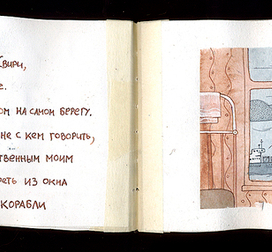 Квири,
е.
ом на самом берегу.
не с кем говорить,
ственным моим
реть из окна
корабли